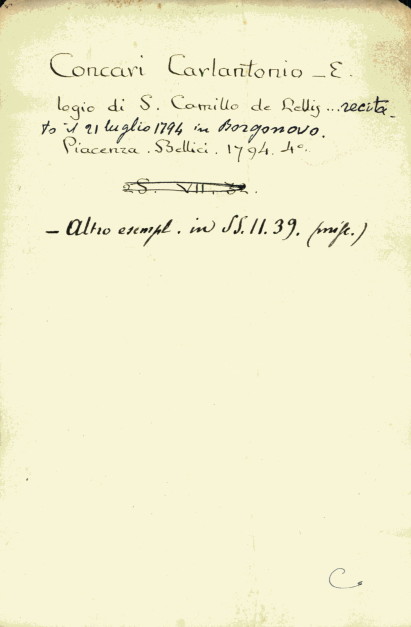 Concari Carlantonio _ E.
logio di S. Camillo de Lellis ... recita-
to il 21 luglio 1794 in Borgonovo.
Piacenza. Bellici. 1794. 4°.
SS. VII. 32.
_ Altro esempl. in SS. 11. 39. (misc.)
C.